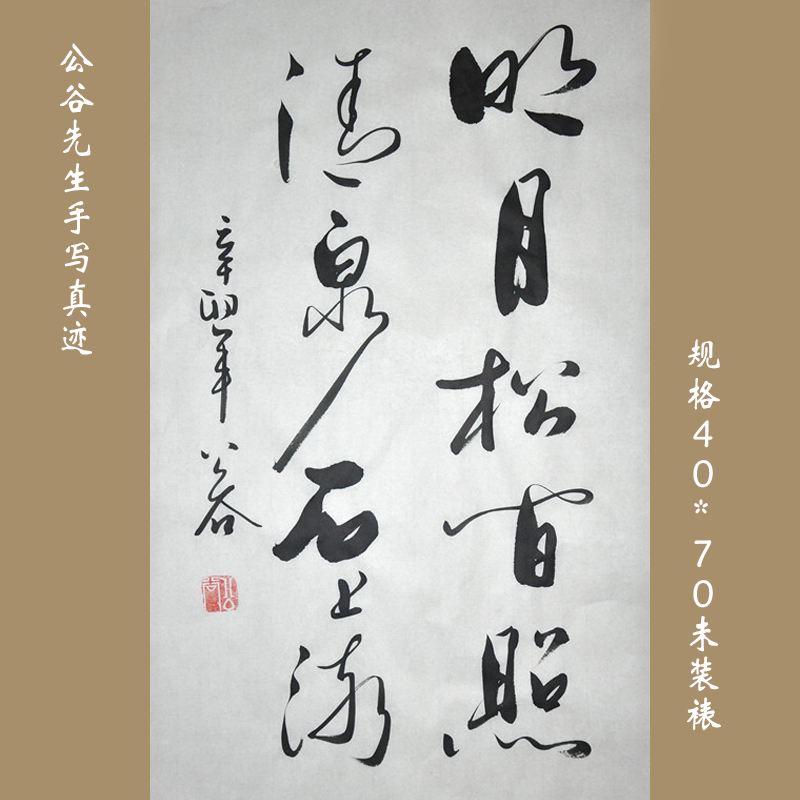 明月松间照
清泉石上流
辛卯年 公谷
公谷先生手写真迹
规格40*70未装裱